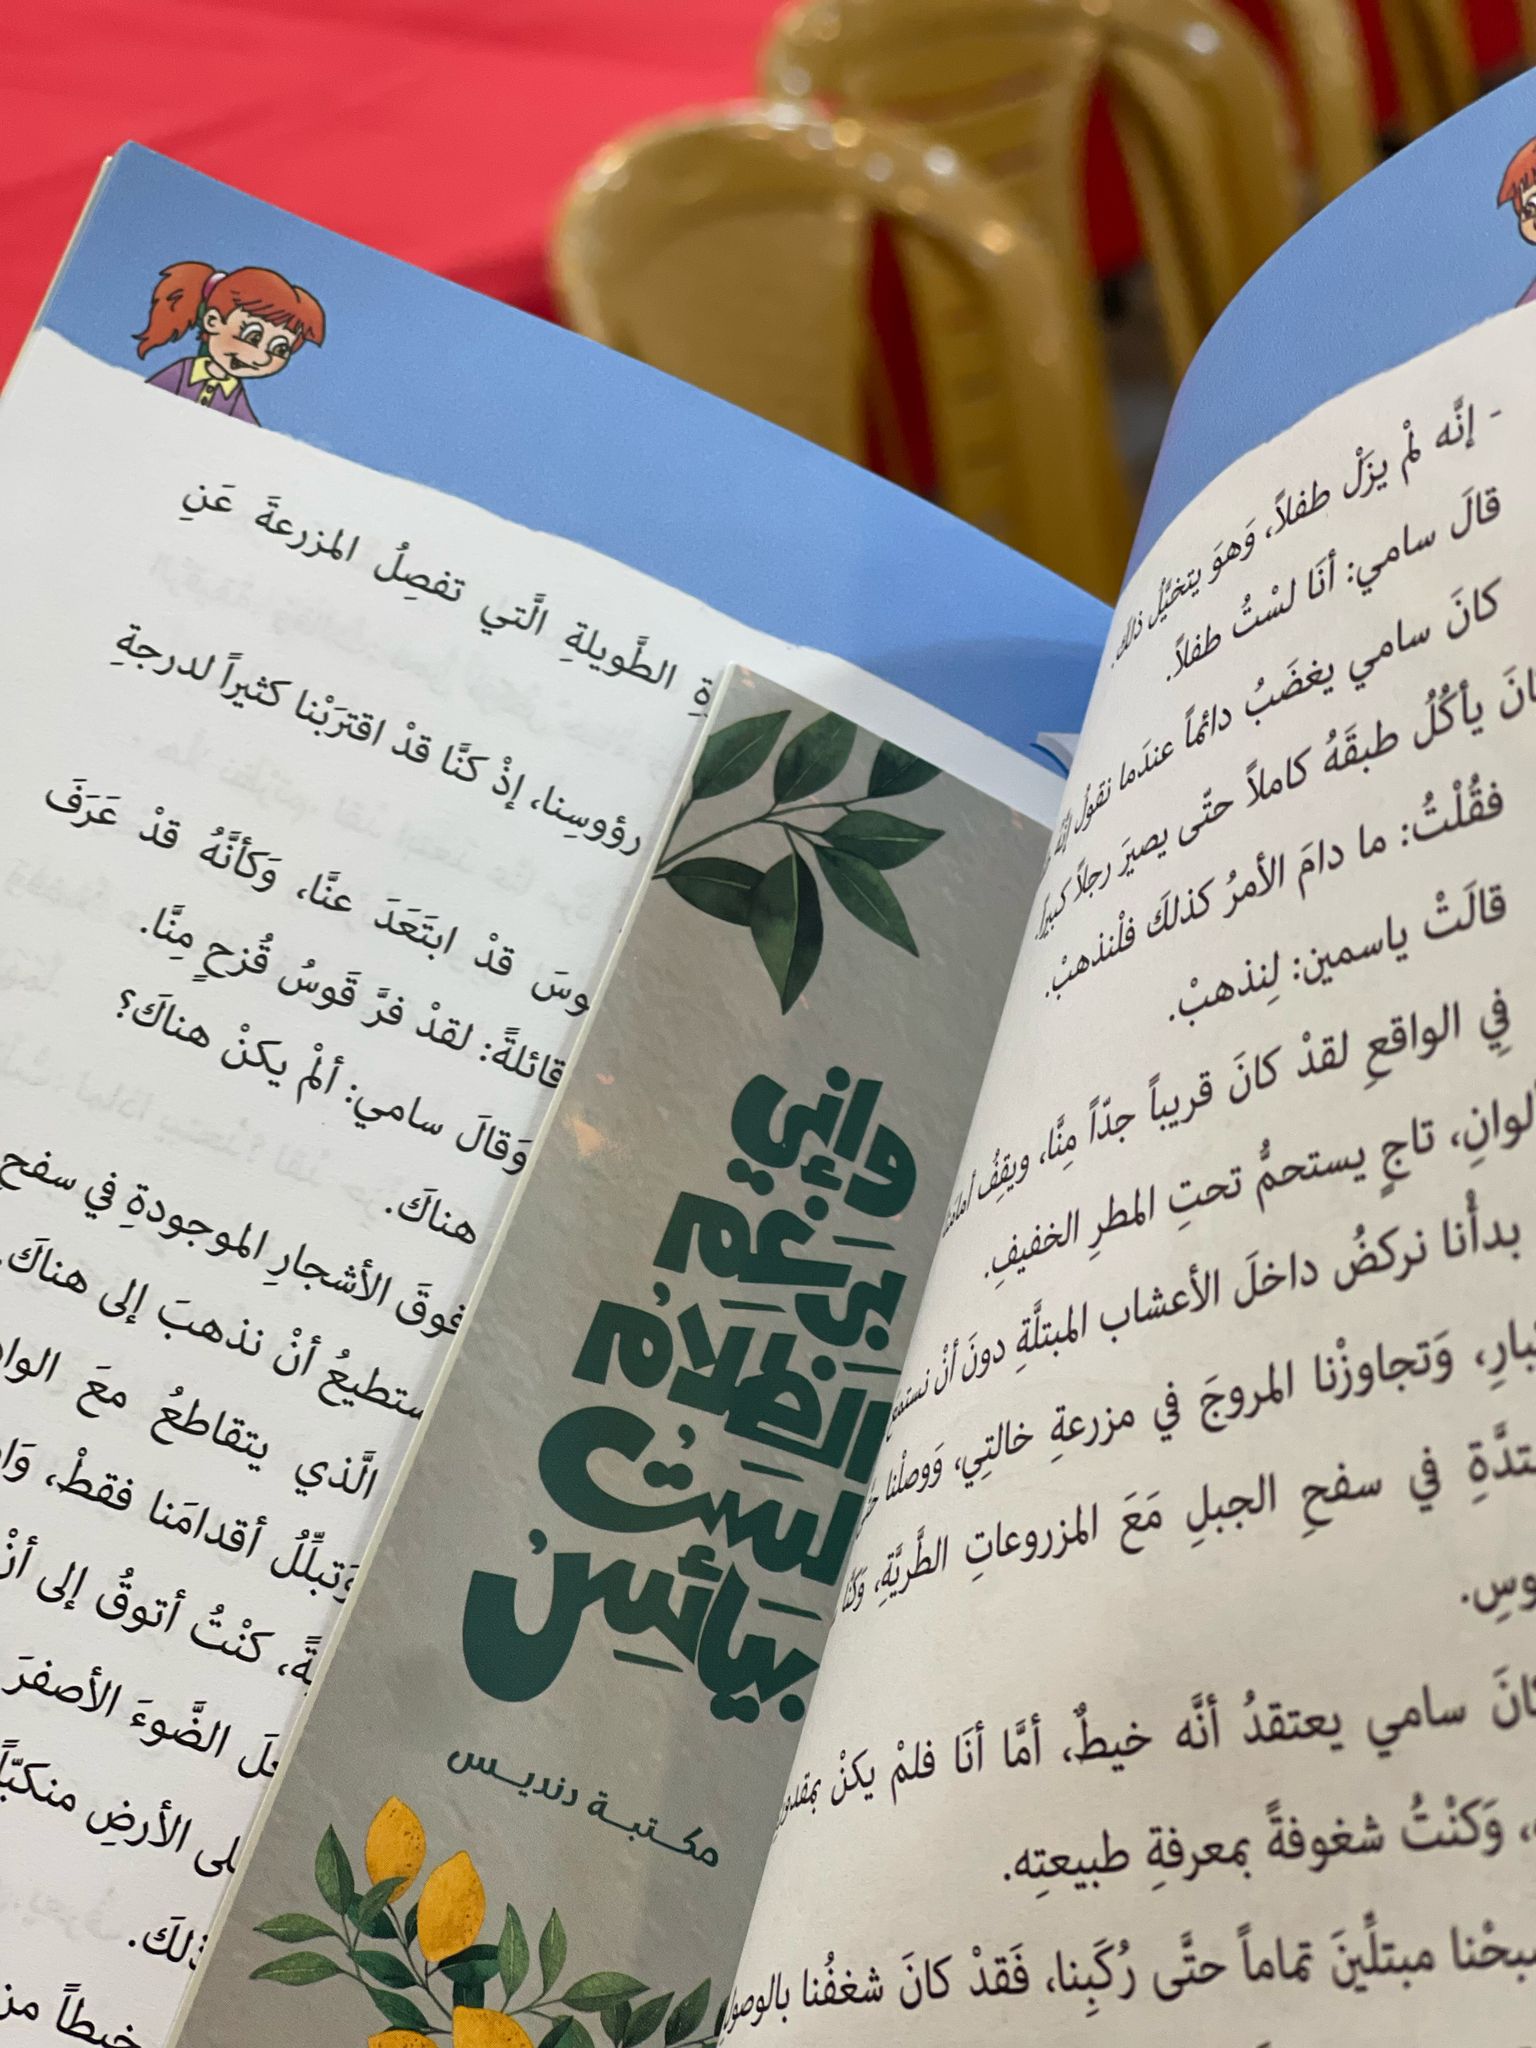 - إنَّه لمْ يزَلْ طفلاً، وَهوَ يتخيَّلُ ذلكَ.
قالَ سامي: أنَا لسْتُ طفلاً.
كانَ سامي يغضَبُ دائماً عندَما نقولُ إنَّهُ
يأكُلُ طبقَهُ كاملاً حتّى يصيرَ رجلاً كبيراً.
فقُلْتُ: ما دامَ الأمرُ كذلكَ فلْنذهبْ.
قالَتْ ياسمين: لِنذهبْ.
فِي الواقعِ لقدْ كانَ قريباً جدّاً مِنَّا، ويقِفُ أمامَنا
تاجٍ يستحمُّ تحتِ المطرِ الخفيفِ.
بدأْنا نركضُ داخلَ الأعشاب المبتلَّةِ دونَ أنْ نستمعَ
وَتجاوزْنا المروجَ في مزرعةِ خالتِي، وَوصلْنا
في سفحِ الجبلِ مَعَ المزروعاتِ الطَّريَّةِ، وَكنَّا
سامي يعتقدُ أنَّه خيطٌ، أمَّا أنَا فلمْ يكنْ
وَكنْتُ شغوفةً بمعرفةِ طبيعتِه.
مبتلِّينَ تماماً حتَّى رُكَبِنا، فَقدْ كانَ شغفُنا
وإني
بي رَغم
الظلامُ
لستُ
بيَائسٍ
مكتبة دنديس
الطَّويلةِ الَّتي تفصِلُ المزرعةَ عَنِ
رؤوسِنا، إذْ كنَّا قدْ اقتربْنا كثيراً لدرجةِ
قدْ ابتَعَدَ عنَّا، وَكأنَّهُ قدْ عَرَفَ
قائلةً: لقدْ فرَّ قَوسُ قُزحٍ مِنَّا.
وَقالَ سامي: ألمْ يكنْ هناكَ؟
هناكَ.
فوقَ الأشجارِ الموجودةِ في سفحِ
أنْ نذهبَ إلى هناكَ.
الَّذي يتقاطعُ معَ
وَتبلِّلُ أقدامَنا فقطْ،
كنْتُ أتوقُ إلى أنْ
الضَّوءَ الأصفرَ
الأرضِ
خيطاً